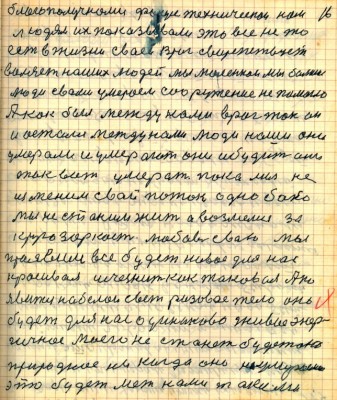 благополучнами физе технически нам 16
людям их показывали это все не то
есть в жизни свае враг свирепствует
валяет наших людей мы маленкои мы болшие
люди свали умераем сооружение не помогло
А как был между нами враг так он
и остался между нами люди наши они
умерали и умерают они и будут они
так вот умерат пока мы не
изменим свай поток одно бако
мы не станим жит а возмемся за
круго заркаст любовь сваю мы
проявим все будет новае для нас
красивая исчезнит как таковая Ано
явится на белой свет розовае тело оно
будет для нас одинаково живое энер-
гичное моего не станет будет оно
природное ни когда оно не умрет
это будет меж нами такими